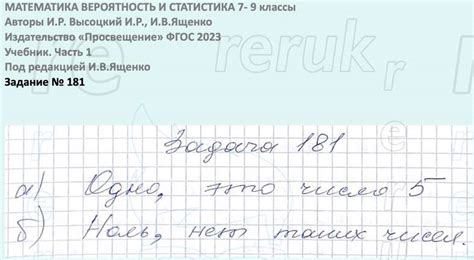 МАТЕМАТИКА ВЕРОЯТНОСТЬ И СТАТИСТИКА 7- 9 классы
Авторы И.Р. Высоцкий И.Р., И.В.Ященко
Издательство «Просвещение» ФГОС 2023
Учебник. Часть 1
Под редакцией И.В.Ященко
Задание № 181
reruk
Задача 181
а) Одно, это число 5
б) Ноль, нет таких чисел.